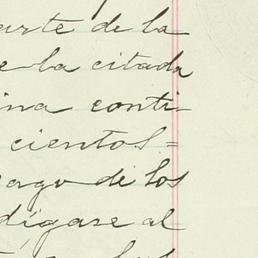 arte de la
e la citada
ina conti-
cientos=
pago de los
dígase al